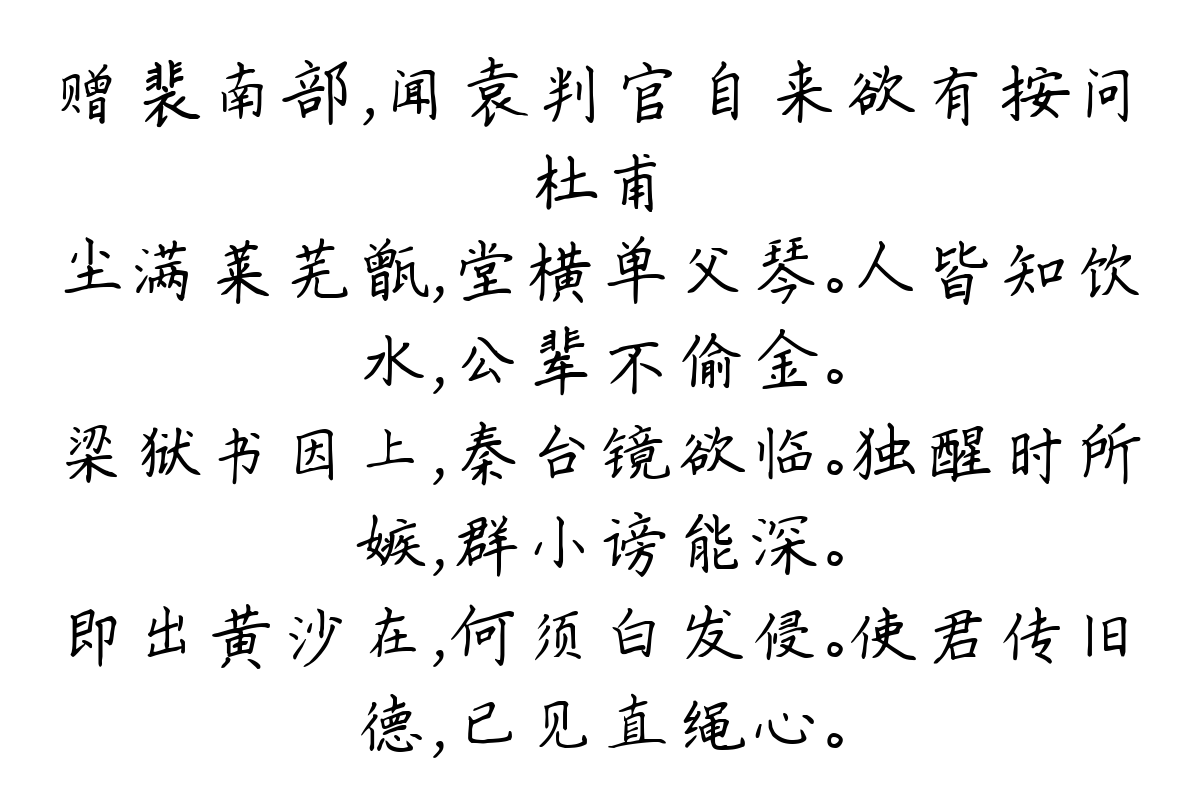 赠裴南部,闻袁判官自来欲有按问
杜甫
尘满莱芜甑,堂横单父琴。人皆知饮
水,公辈不偷金。
梁狱书因上,秦台镜欲临。独醒时所
嫉,群小谤能深。
即出黄沙在,何须白发侵。使君传旧
德,已见直绳心。